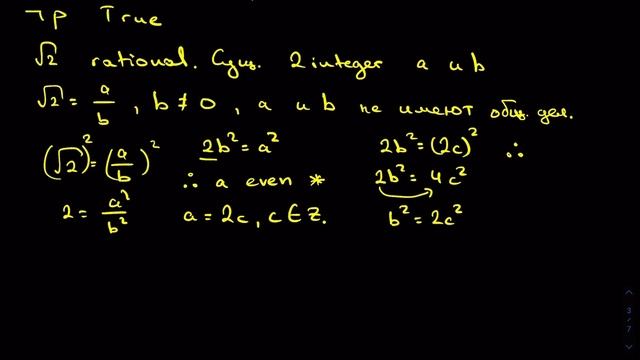 ¬p True
√2 rational. Сущ. 2 integer a и b
√2 = a/b , b ≠ 0 , a и b не имеют общ. дел.
(√2)² = (a/b)²
2 = a²/b²
2b² = a²
∴ a even *
a = 2c, c ∈ Z.
2b² = (2c)² ∴
2b² = 4c²
b² = 2c²
3
/
7